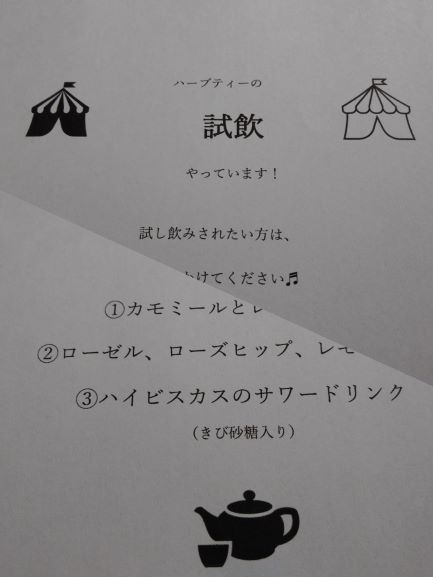 ハーブティーの
試飲
やっています！
試し飲みされたい方は、
かけてください♬
①カモミールとレ
②ローゼル、ローズヒップ、レモ
③ハイビスカスのサワードリンク
（きび砂糖入り）